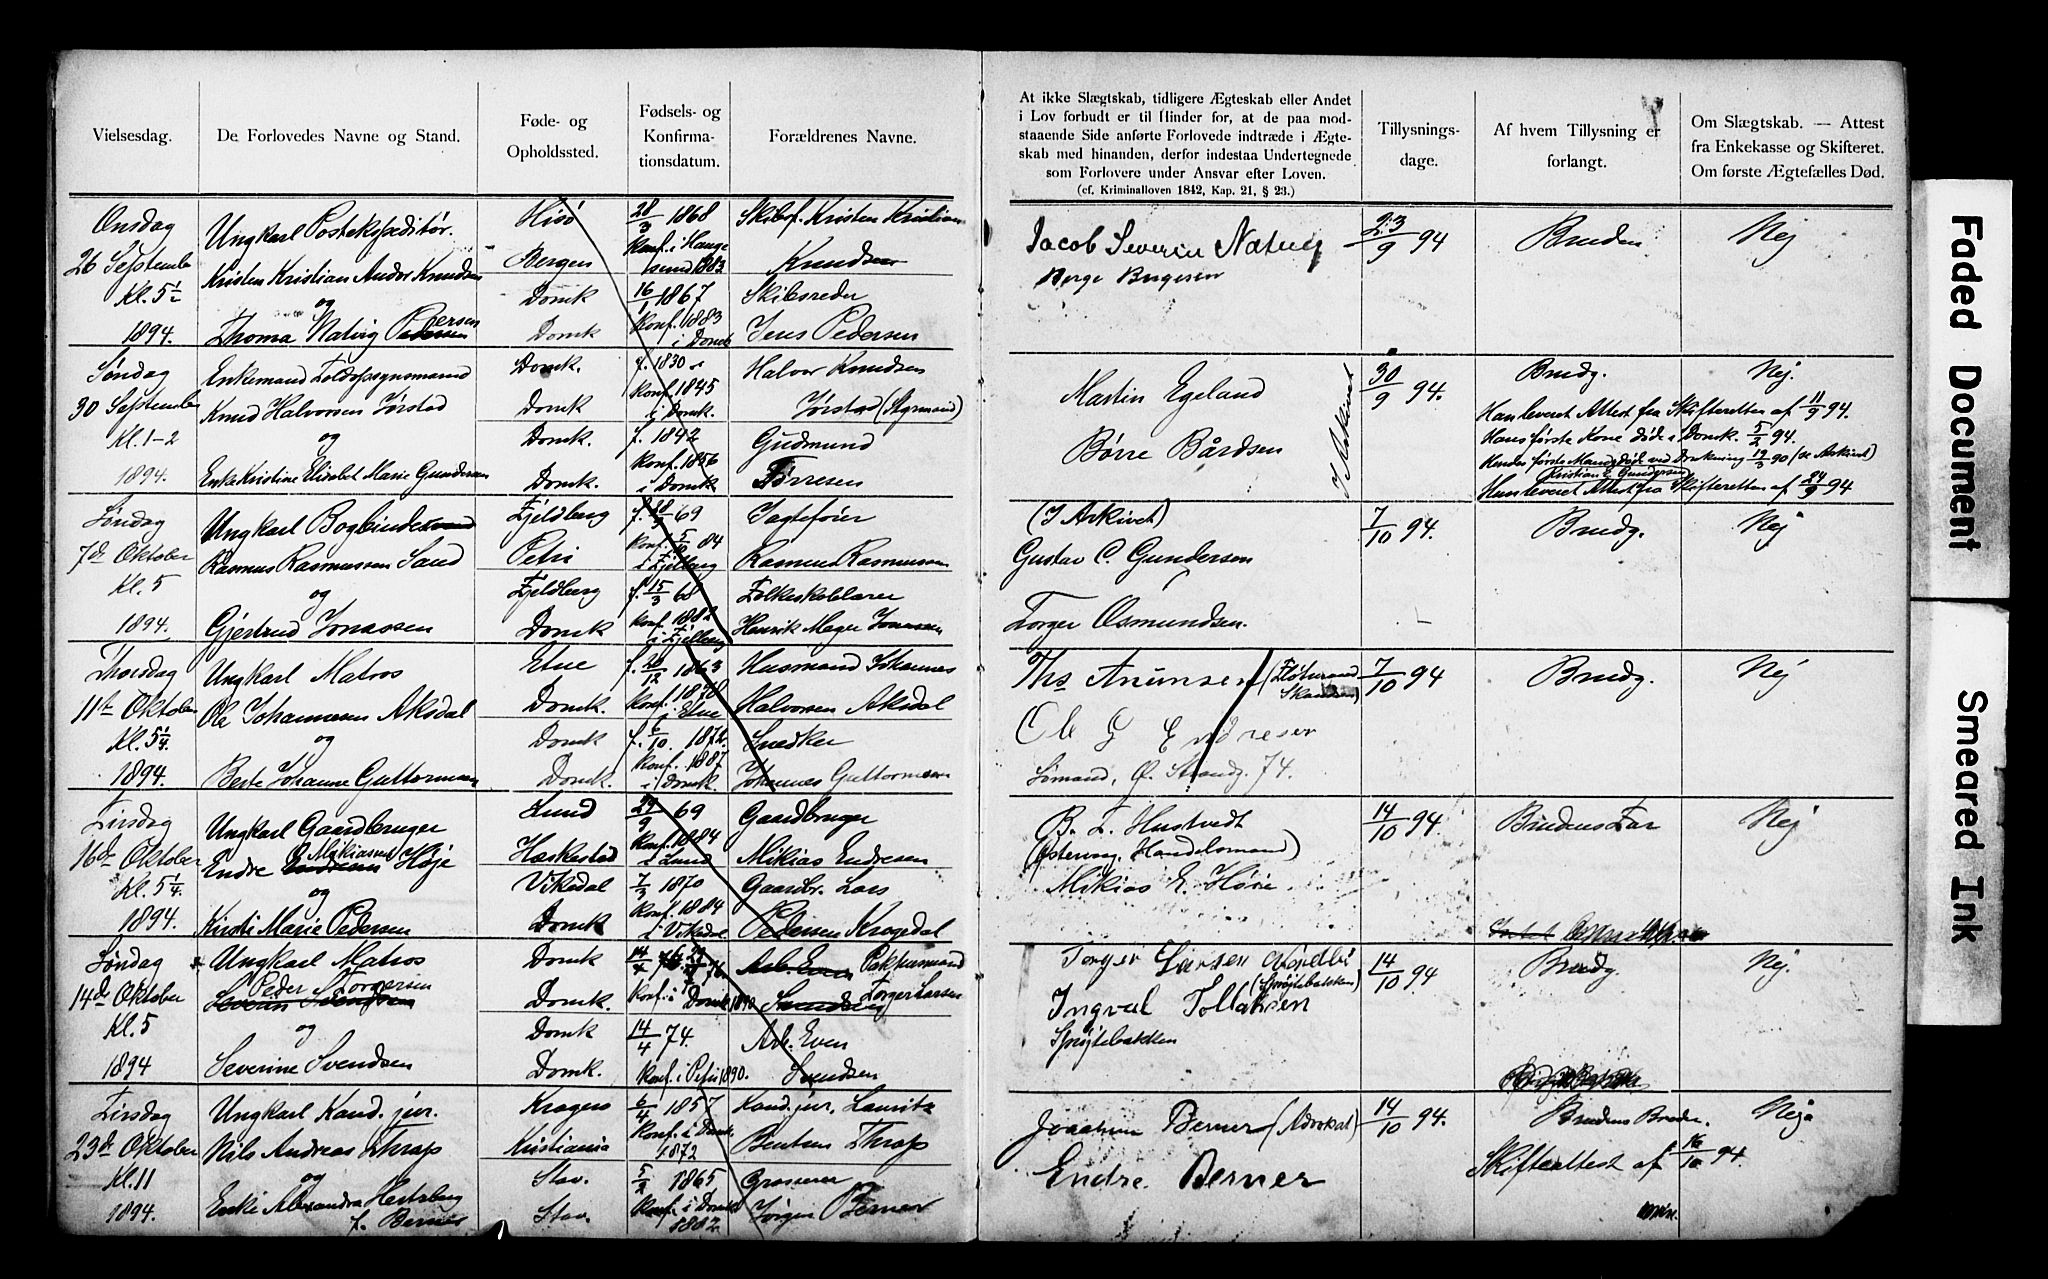 Vielsesdag.
De Forlovedes Navne og Stand.
Føde- og
Opholdssted.
Fødsels- og
Konfirma-
tionsdatum.
Forældrenes Navne.
Onsdag
26 September
Kl. 5½
1894.
Ungkarl Postekspeditør.
Kristen Kristian Andr. Knudsen
og
Thoma Natvig Pedersen
Hisø
Bergen
Domk
Domk
28/3 1868
Konf. i Hauge
sund 1883
16/1 1867
Konf. 1883
i Domk
Skibsf. Kristen Kristian
Knudsen
Skibsreder
Jens Pedersen
Søndag
30 September
Kl. 1-2
1894.
Enkemand Toldopsynsmand
Knud Halvorsen Jørstad
og
Enke Kristine Elisabet Marie Gundersen
Domk.
Domk
Domk.
Domk.
f. 1830
Konf. 1845
i Domk.
f. 1842
Konf. 1856
i Domk
Halvor Knudsen
Jørstad (Styrmand)
Gudmund
Tørresen
Søndag
7de Oktober
Kl. 5
1894.
Ungkarl Bogbinder
Rasmus Rasmussen Sand
og
Gjertrud Jonassen
Fjeldberg
Petri
Fjeldberg
Domk
69
84
i Fjelberg
f. 15/3 68
Konf. 1882
i Fjelberg
Rasmus Rasmussen
Folkeskolelærer
Henrik Meyer Jonassen
Thorsdag
11te Oktober
Kl. 5¼
1894.
Ungkarl Matros
Ole Johannesen Aksdal
og
Berte Johanne Guttormsen
Etne
Domk.
Domk
Domk.
f. 20/12 1863
Konf. 1878
i Etne
f. 6/10 1872.
Konf. 1887
i Domk.
Husmand Johannes
Halvorsen Aksdal
Snedker
Johannes Guttormsen
Tirsdag
16de Oktober
Kl. 5¼
1894.
Ungkarl Gaardbruger
Mikiassen
Endre Endresen Høje
og
Kirsti Marie Pedersen
Lund
Heskestad
Vikedal
Domk
29/9 69
Konf. 1884
i Lund
7/3 1870
Konf. 1884
i Vikedal
Gaardbruger
Mikias Endresen
Gaardbr. Lars
Pedersen Krogedal
Søndag
14de Oktober
Kl. 5
1894
Ungkarl Matros
Peder Torgersen
og
Severine Svendsen
Domk
Domk.
Domk
Domk.
Konf. i Domk 1890
14/4 74.
Konf. i Petri 1890.
Arb. Even Pakhusmand
Svendsen Torger Larsen
Arb. Even
Svendsen
Tirsdag
23de Oktober
Kl. 11
1894.
Ungkarl Kand. jur.
Nils Andreas Thrap
og
Enke Alexandra Hertzberg
f. Berner
Kragerø
Kristiania
Stav.
Stav.
6/4 1857
Konf. i Domk.
1872
5/2 1865
Konf. i Domk
1882
Kand. jur. Lauritz
Bentsen Thrap
Grosserer
Jørgen Berner
At ikke Slægtskab, tidligere Ægteskab eller Andet
i Lov forbudt er til Hinder for, at de paa mod-
staaende Side anførte Forlovede indtræde i Ægte-
skab med hinanden, derfor indestaa Undertegnede
som Forlovere under Ansvar efter Loven.
(cf. Kriminalloven 1842, Kap. 21, § 23.)
Tillysnings-
dage.
Af hvem Tillysning er
forlangt.
Om Slægtskab. — Attest
fra Enkekasse og Skifteret.
Om første Ægtefælles Død.
Jacob Severin Natvig
Børge Børgesen
23/9 94
Bruden
Nej
Martin Egeland
Børre Bårdsen
I Arkivet
30/9 94.
Brudg.
Nej.
Han leveret Attest fra Skifteretten af 11/9 94.
Hans første Kone døde i Domk. 5/2 94.
Hendes første Mand døde ved Drukning 19/3 90 (se Arkivet)
Kristian E. Gundersen
Hun leveret Attest fra Skifteretten af 24/9 94
(I Arkivet)
Gustav C. Gundersen
Torger Osmundsen.
7/10 94.
Brudg.
Nej
Ths Anunsen (
Ole G Endresen
Lømand, Ø. Strandg. 74.
7/10 94
Brudg.
Nej
B. T. Hustvedt
(Østervaag. Handelsmand)
Mikias E. Høie
14/10 94.
Brudens Far
Nej
Torger Larsen Nordbø
(Sprøitebakken)
Ingval Tollaksen
Sprøitebakken
14/10 94
Brudg.
Nej.
Joachim Berner (Advokat)
Endre Berner
14/10 94.
Brudens Broder.
Skifteattest af 16/10 94.
Nej
Faded Document
Smeared Ink